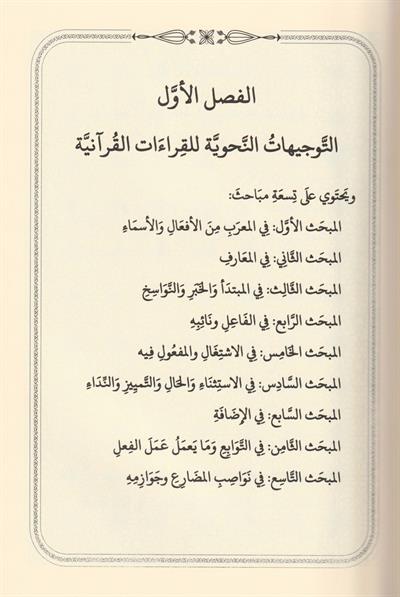 الفصل الأوَّل
التَّوجيهاتُ النَّحويَّة للقِراءَات القُرآنيَّة
ويَحتَوي علَى تِسعَةِ مبَاحثَ:
المبحَث الأوَّل: في المعرَبِ مِنَ الأفعَالِ وَالأسمَاءِ
المبحَث الثَّاني: في المعَارفِ
المبحَث الثَّالِث: في المبتَدأ وَالخَبَر وَالنَّوَاسِخِ
المبحَث الرَّابع: في الفَاعِلِ ونَائِبِهِ
المبحَث الخَامِس: في الاشتِغَالِ والمفعُولِ فِيه
المبحَث السَّادِس: في الاستِثنَاءِ وَالحَالِ وَالتَّميِيزِ وَالنِّدَاءِ
المبحَث السَّابع: في الإضَافَةِ
المبحَث الثَّامِن: في التَّوَابِعِ وَمَا يَعمَلُ عَمَلَ الفِعلِ
المبحَث التَّاسِع: في نَوَاصِبِ المضَارعِ وجَوَازِمِهِ